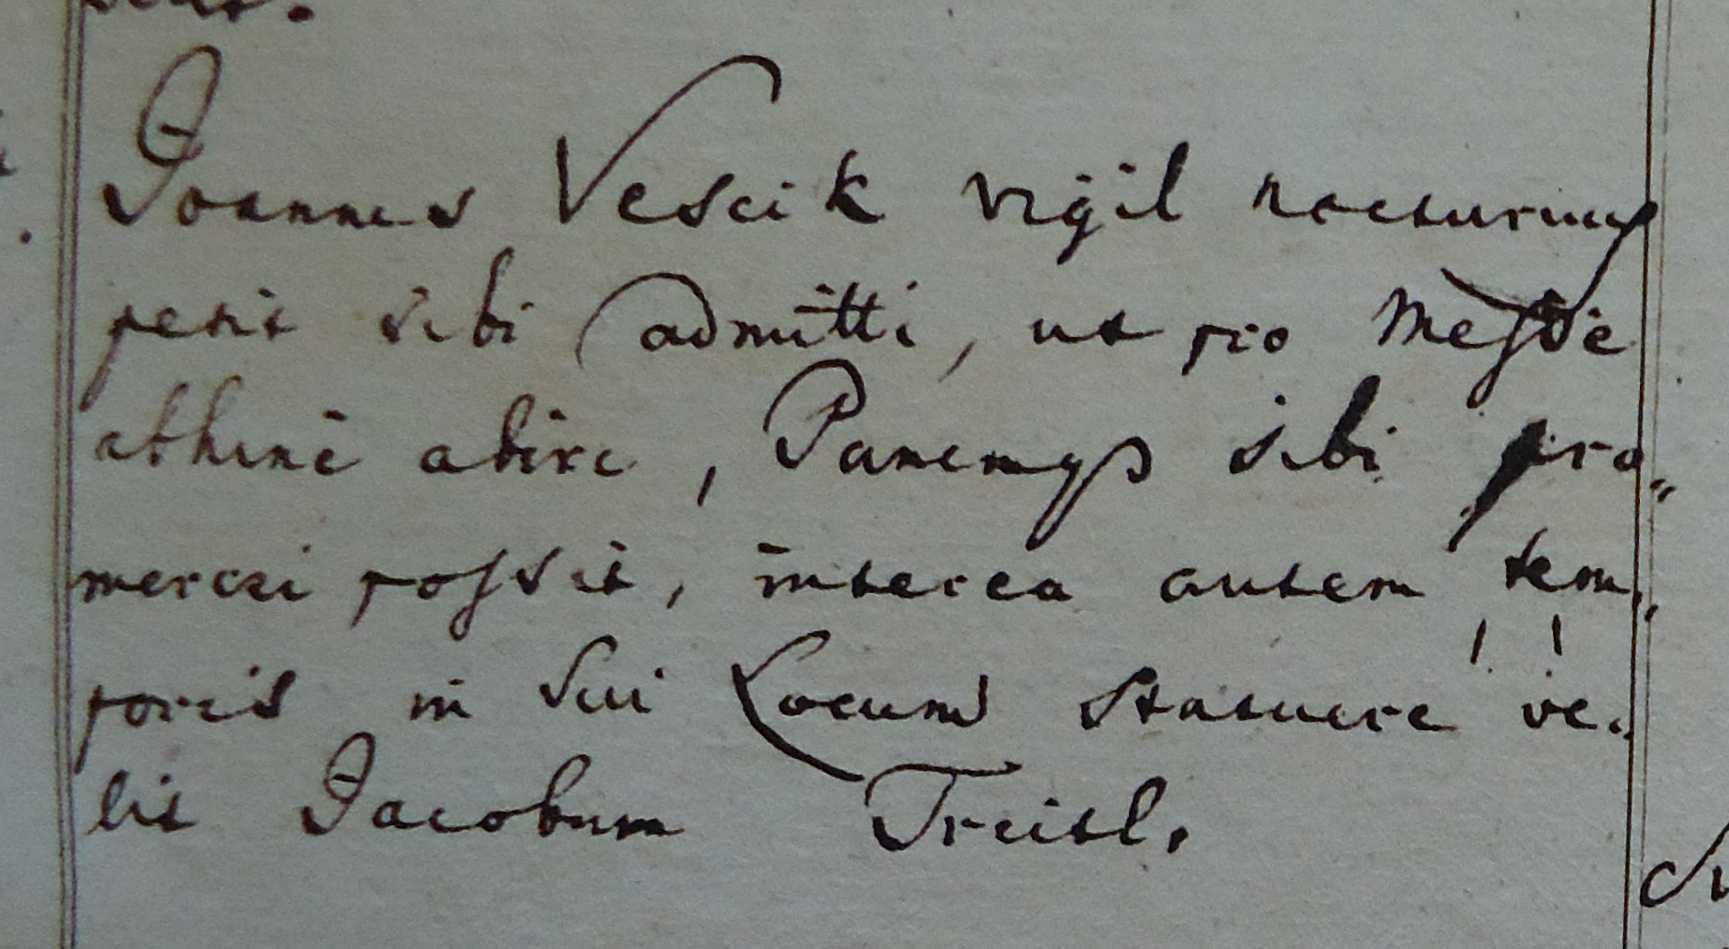 Joannes Vescik vigil nocturnus
petit sibi admitti, ut pro Messe
abire, Panemqs sibi pro„
mereri possit, interea autem tem„
poris in sui Locum statuere ve„
lit Jacobum Treitl.